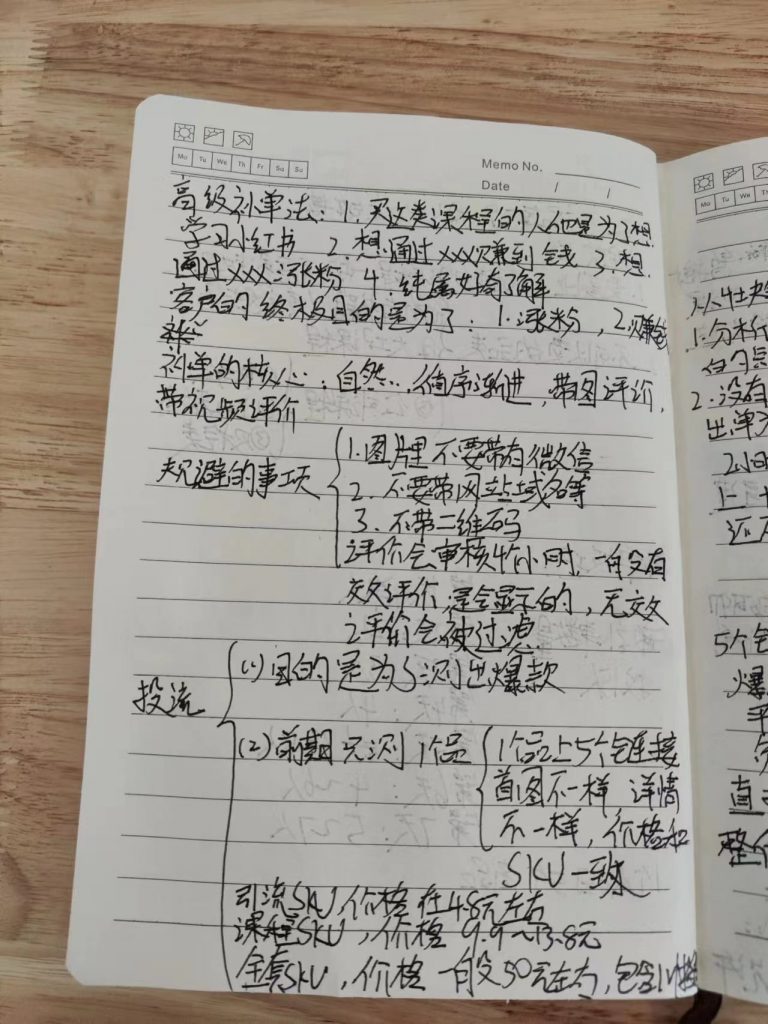 Mo Tu We Th Fr Sa Su
Memo No.
Date / /
高级补单法：1. 买这类课程的人他是为了想
学习小红书 2. 想通过xxx赚到钱 3. 想
通过xxx涨粉 4. 纯属好奇了解
客户的终极目的是为了：1. 涨粉, 2. 赚钱
补单的核心：自然..., 循序渐进, 带图评价,
带视频评价
规避的事项
1. 图片里不要带有微信
2. 不要带网站域名等
3. 不带二维码
评价会审核4个小时, 一般有
效评价, 是会显示的, 无效
评价会被过滤
投流
(1) 目的是为了测出爆款
(2) 前期只测1个品
1个品上5个链接
首图不一样 详情
不一样, 价格和
SKU一致
引流SKU, 价格在4.8元左右
课程SKU, 价格9.9~13.8元
全套SKU, 价格一般50元左右, 包含
Mo Tu We Th
1. 分析
2. 没有
出单
2小时
5个
爆
整个